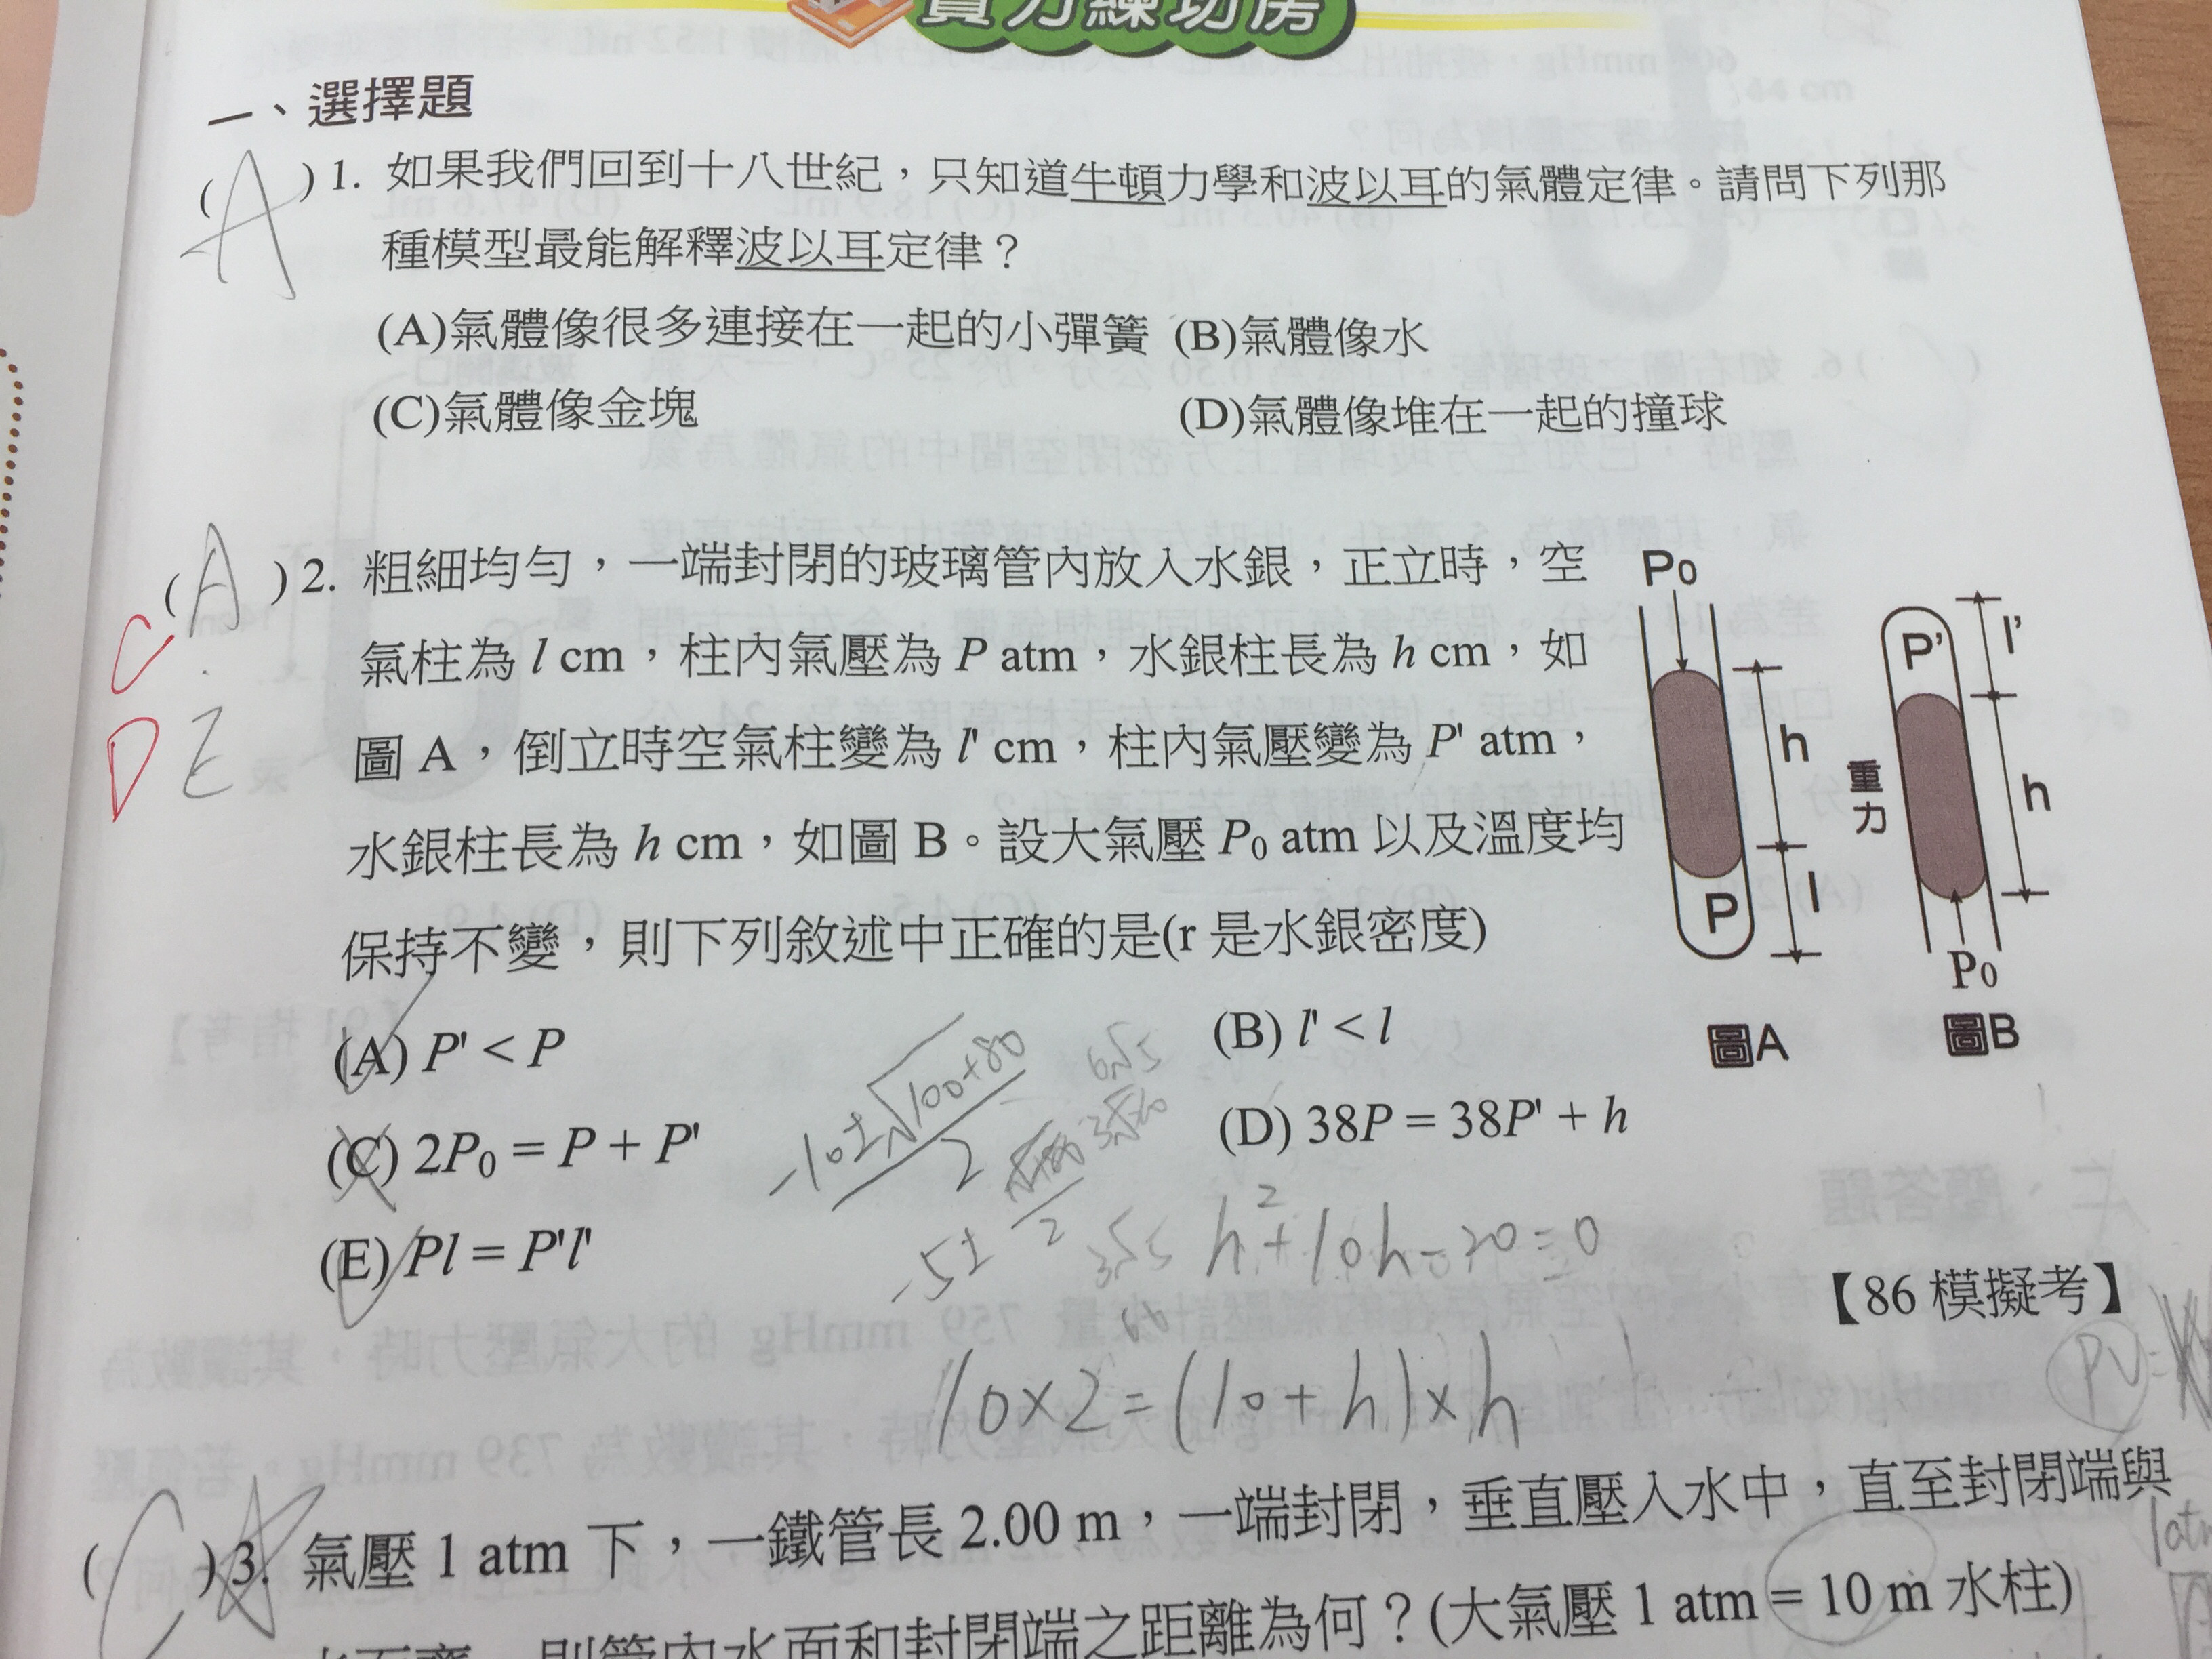 實力練功房
一、選擇題
( A ) 1. 如果我們回到十八世紀，只知道牛頓力學和波以耳的氣體定律。請問下列那
種模型最能解釋波以耳定律？
(A)氣體像很多連接在一起的小彈簧 (B)氣體像水
(C)氣體像金塊 (D)氣體像堆在一起的撞球
( A ) 2. 粗細均勻，一端封閉的玻璃管內放入水銀，正立時，空
氣柱為 l cm，柱內氣壓為 P atm，水銀柱長為 h cm，如
C
圖 A，倒立時空氣柱變為 l' cm，柱內氣壓變為 P' atm，
D E
水銀柱長為 h cm，如圖 B。設大氣壓 P₀ atm 以及溫度均
保持不變，則下列敘述中正確的是(r 是水銀密度)
P₀
h
P
l
圖A
重力
P'
l'
h
P₀
圖B
(A) P' < P (B) l' < l
(C) 2P₀ = P + P' (D) 38P = 38P' + h
(E) Pl = P'l'
-10±√100+80
2
-5±
2
3√5
h²+10h-20=0
【86 模擬考】
PV=
10×2=(10+h)×h
( C ) 3. 氣壓 1 atm 下，一鐵管長 2.00 m，一端封閉，垂直壓入水中，直至封閉端與
水面齊，則管內水面和封閉端之距離為何？(大氣壓 1 atm = 10 m 水柱)
1atm